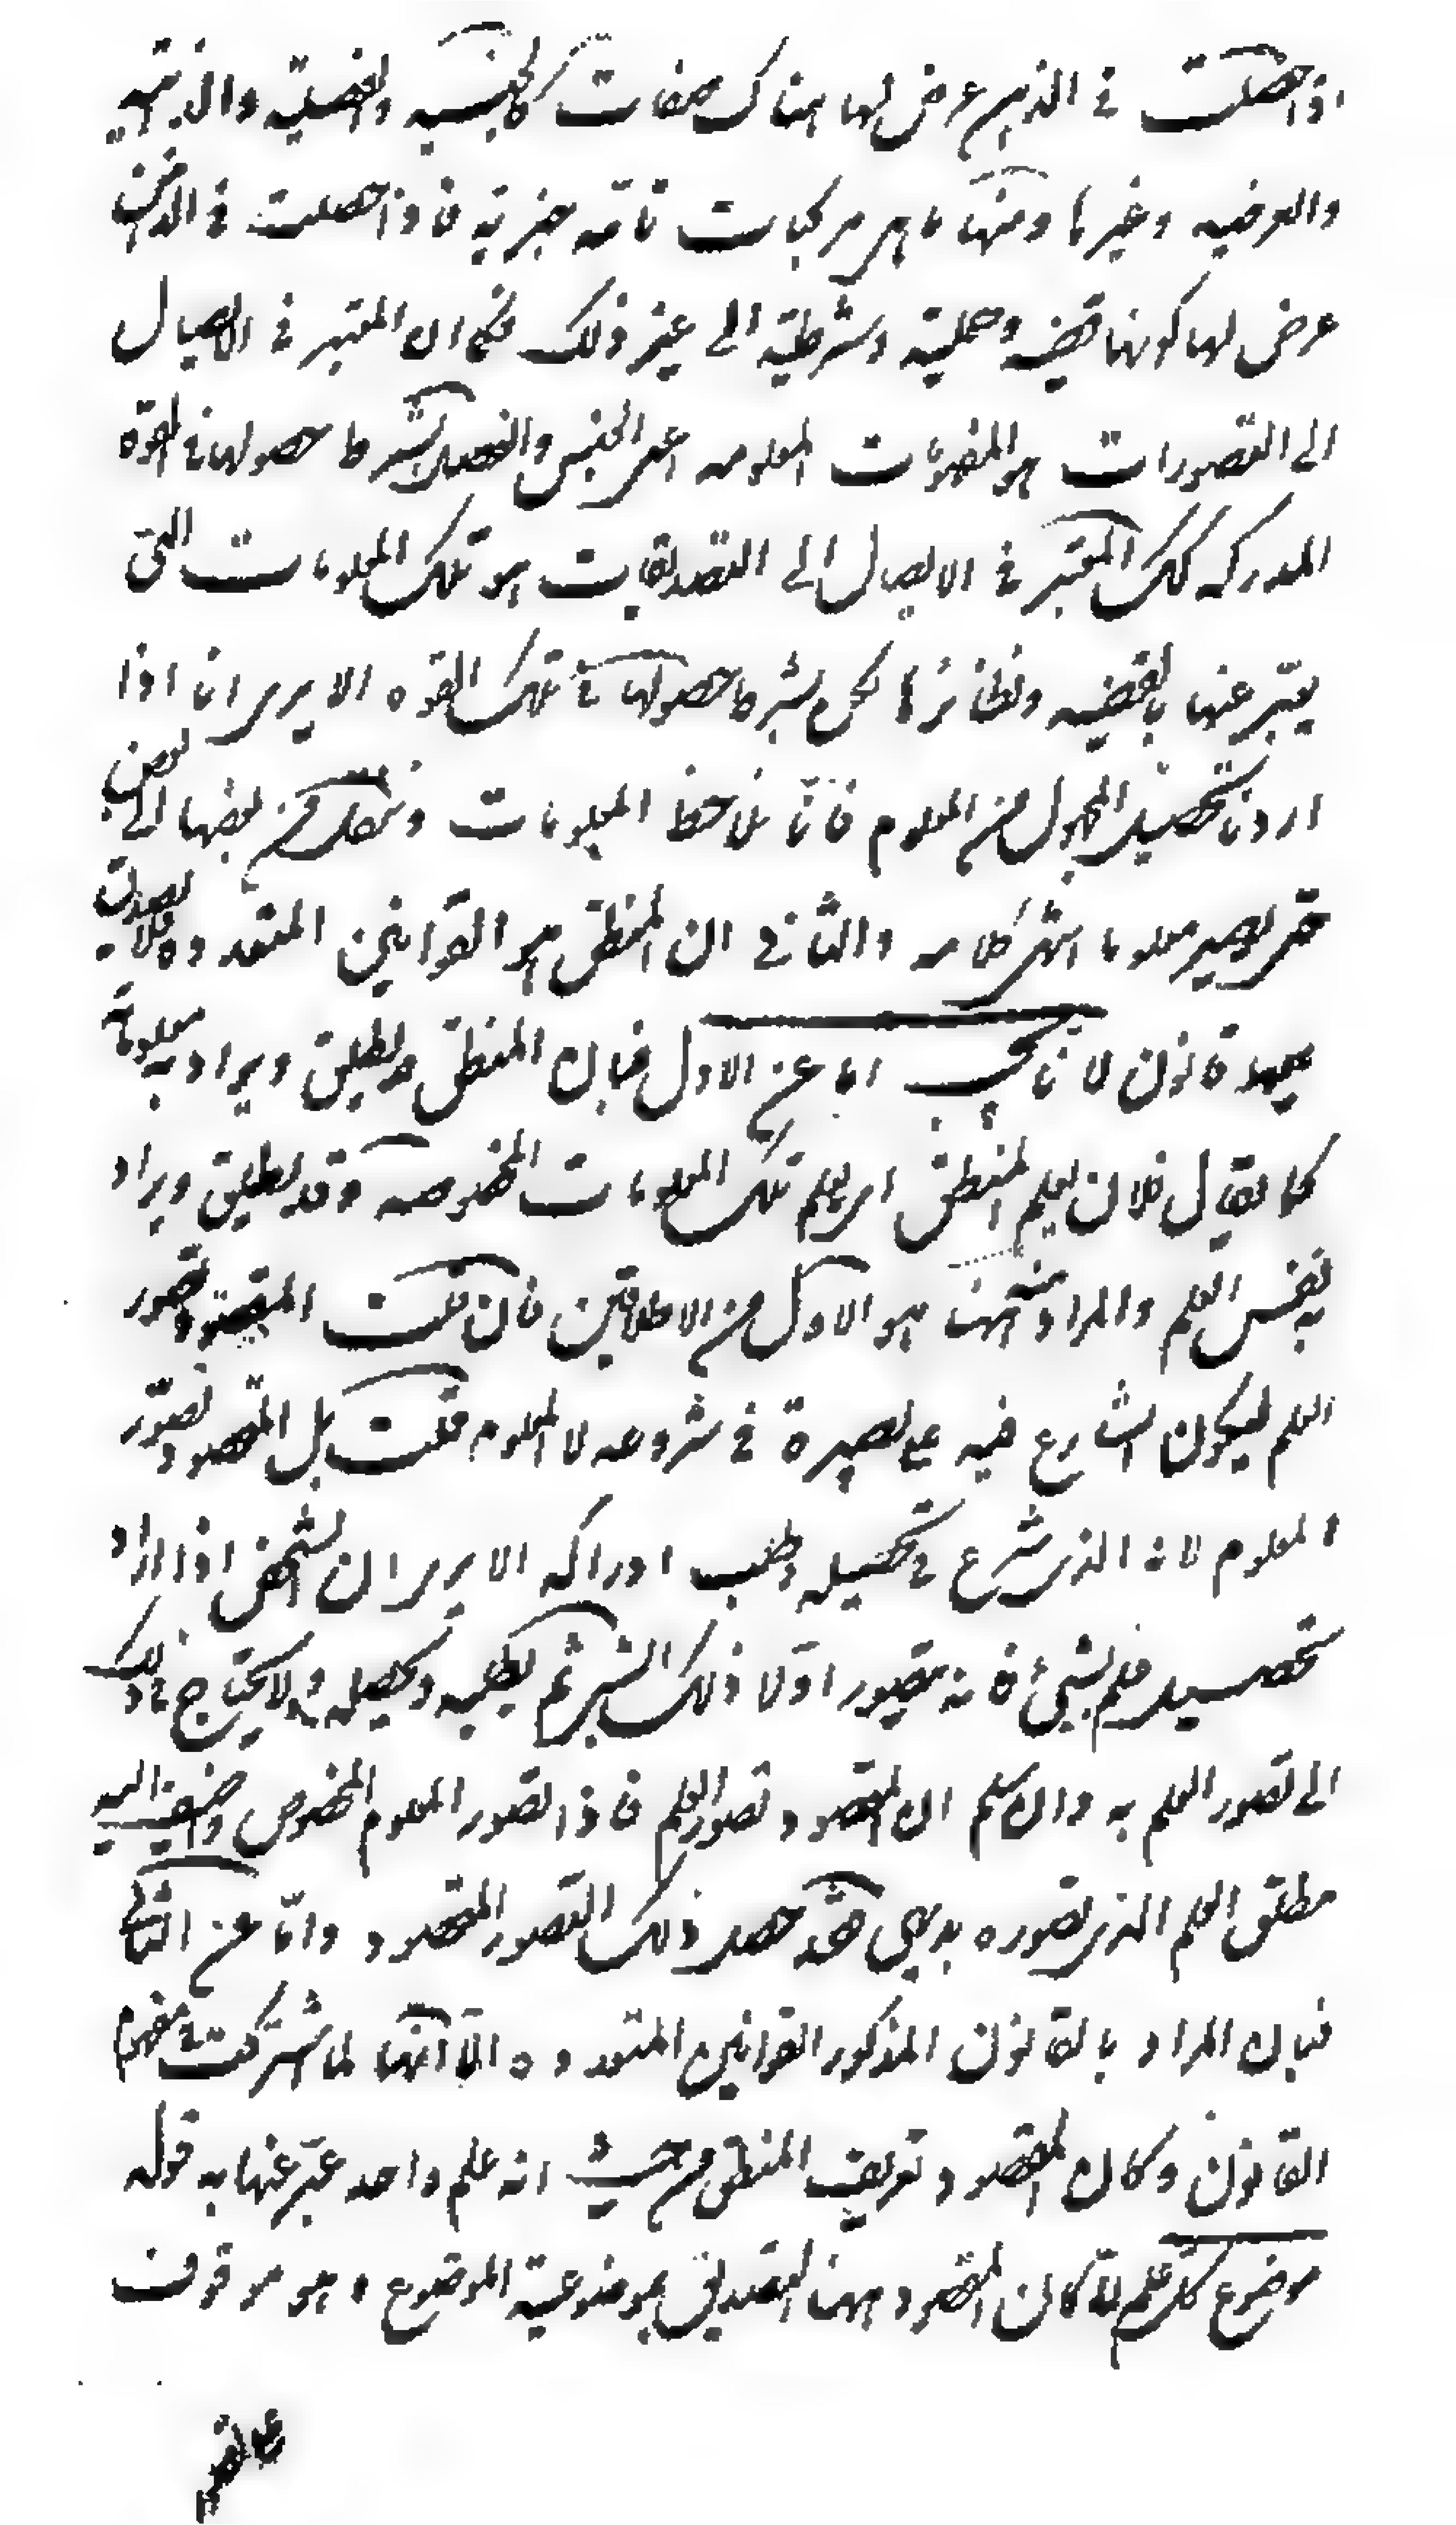 اذا حصلت في الذهن عرض لها هناك صفات كالجنسيه والفصليه والذاتيه
والعرضيه وغيرها ومنها ما هي مركبات تامه خبريه فاذا حصلت في الذهن
عرض لها كونها قضيه وحمليه وشرطيه الى غير ذلك فكما ان المعتبر في الايصال
الى التصورات هو المفهومات المعلومه اعنى الجنس والفصل بشرط حصولها في القوة
المدركه كك المعتبر في الايصال الى التصديقات هو تلك المعلومات التى
يعبّر عنها بالقضيه ونظائرها لكن بشرط حصولها في تلك القوه الا يرى انا اذا
اردنا تحصيل المجهول من المعلوم فانا نلاحظ المعلومات وننتقل من بعضها الى بعض
حتى يصير معلوما انتهى كلامه والثاني ان المنطق هو القوانين المتعدده فلا يصدق
عليه انه قانون لانا نجيب اما عن الاول فبان المنطق قد يطلق ويراد به معلوماته
كما يقال فلان يعلم المنطق اى يعلم تلك المعلومات المخصوصه وقد يطلق ويراد
به نفس العلم والمراد منه ههنا هو الاول من الاطلاقين فان قلت المقصود تصور
العلم ليكون الشارع فيه على بصيرة في شروعه لا المعلوم قلت بل المقصود تصوّر
المعلوم لانه الذى شرع في تحصيله وطلب ادراكه الا يرى ان الشخص اذا اراد
تحصيل علم بشئ فانه يتصور اوّلا ذلك الشئ ثم يطلبه ويحصله ولا يحتاج في ذلك
الى تصور العلم به وان سلم ان المقصود تصور العلم فاذا تصور المعلوم المخصوص واضيف اليه
مطلق العلم الذى تصوره بديهى فقد حصل ذلك التصور المقصود وامّا عن الثاني
فبان المراد بالقانون المذكور القوانين المتعدده الّا انها لما اشتركت في مفهوم
القانون وكان المقصود تعريف المنطق من حيث انه علم واحد عبّر عنها به قوله
موضوع كل علم لمّا كان المقصود ههنا التصديق بموضوعية الموضوع وهو موقوف